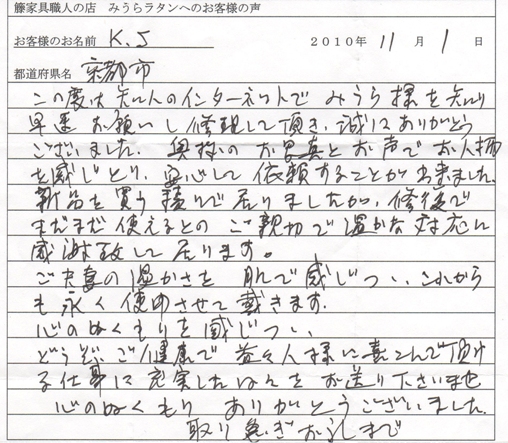 籐家具職人の店 みうらラタンへのお客様の声
お客様のお名前 K.S 2010年 11月 1日
都道府県名 京都市
この度は知人のインターネットで みうら様を知り
早速お願いし修理して頂き、誠にありがとう
ございました。奥様のお写真とお声でお人柄
を感じとり、安心して依頼することが出来ました。
新品を買う積りで居りましたが、修後で
まだまだ使えるとの ご親切で温かな対応に
感謝致して居ります。
ご夫妻の温かさを 肌で感じつゝ、これから
も永く使用させて戴きます。
心のぬくもりを感じつゝ、
どうぞ、ご健康で益々人様に喜こんで頂け
る仕事に充実した日々をお送り下さいませ
心のぬくもり ありがとうございました。
取り急ぎお礼まで